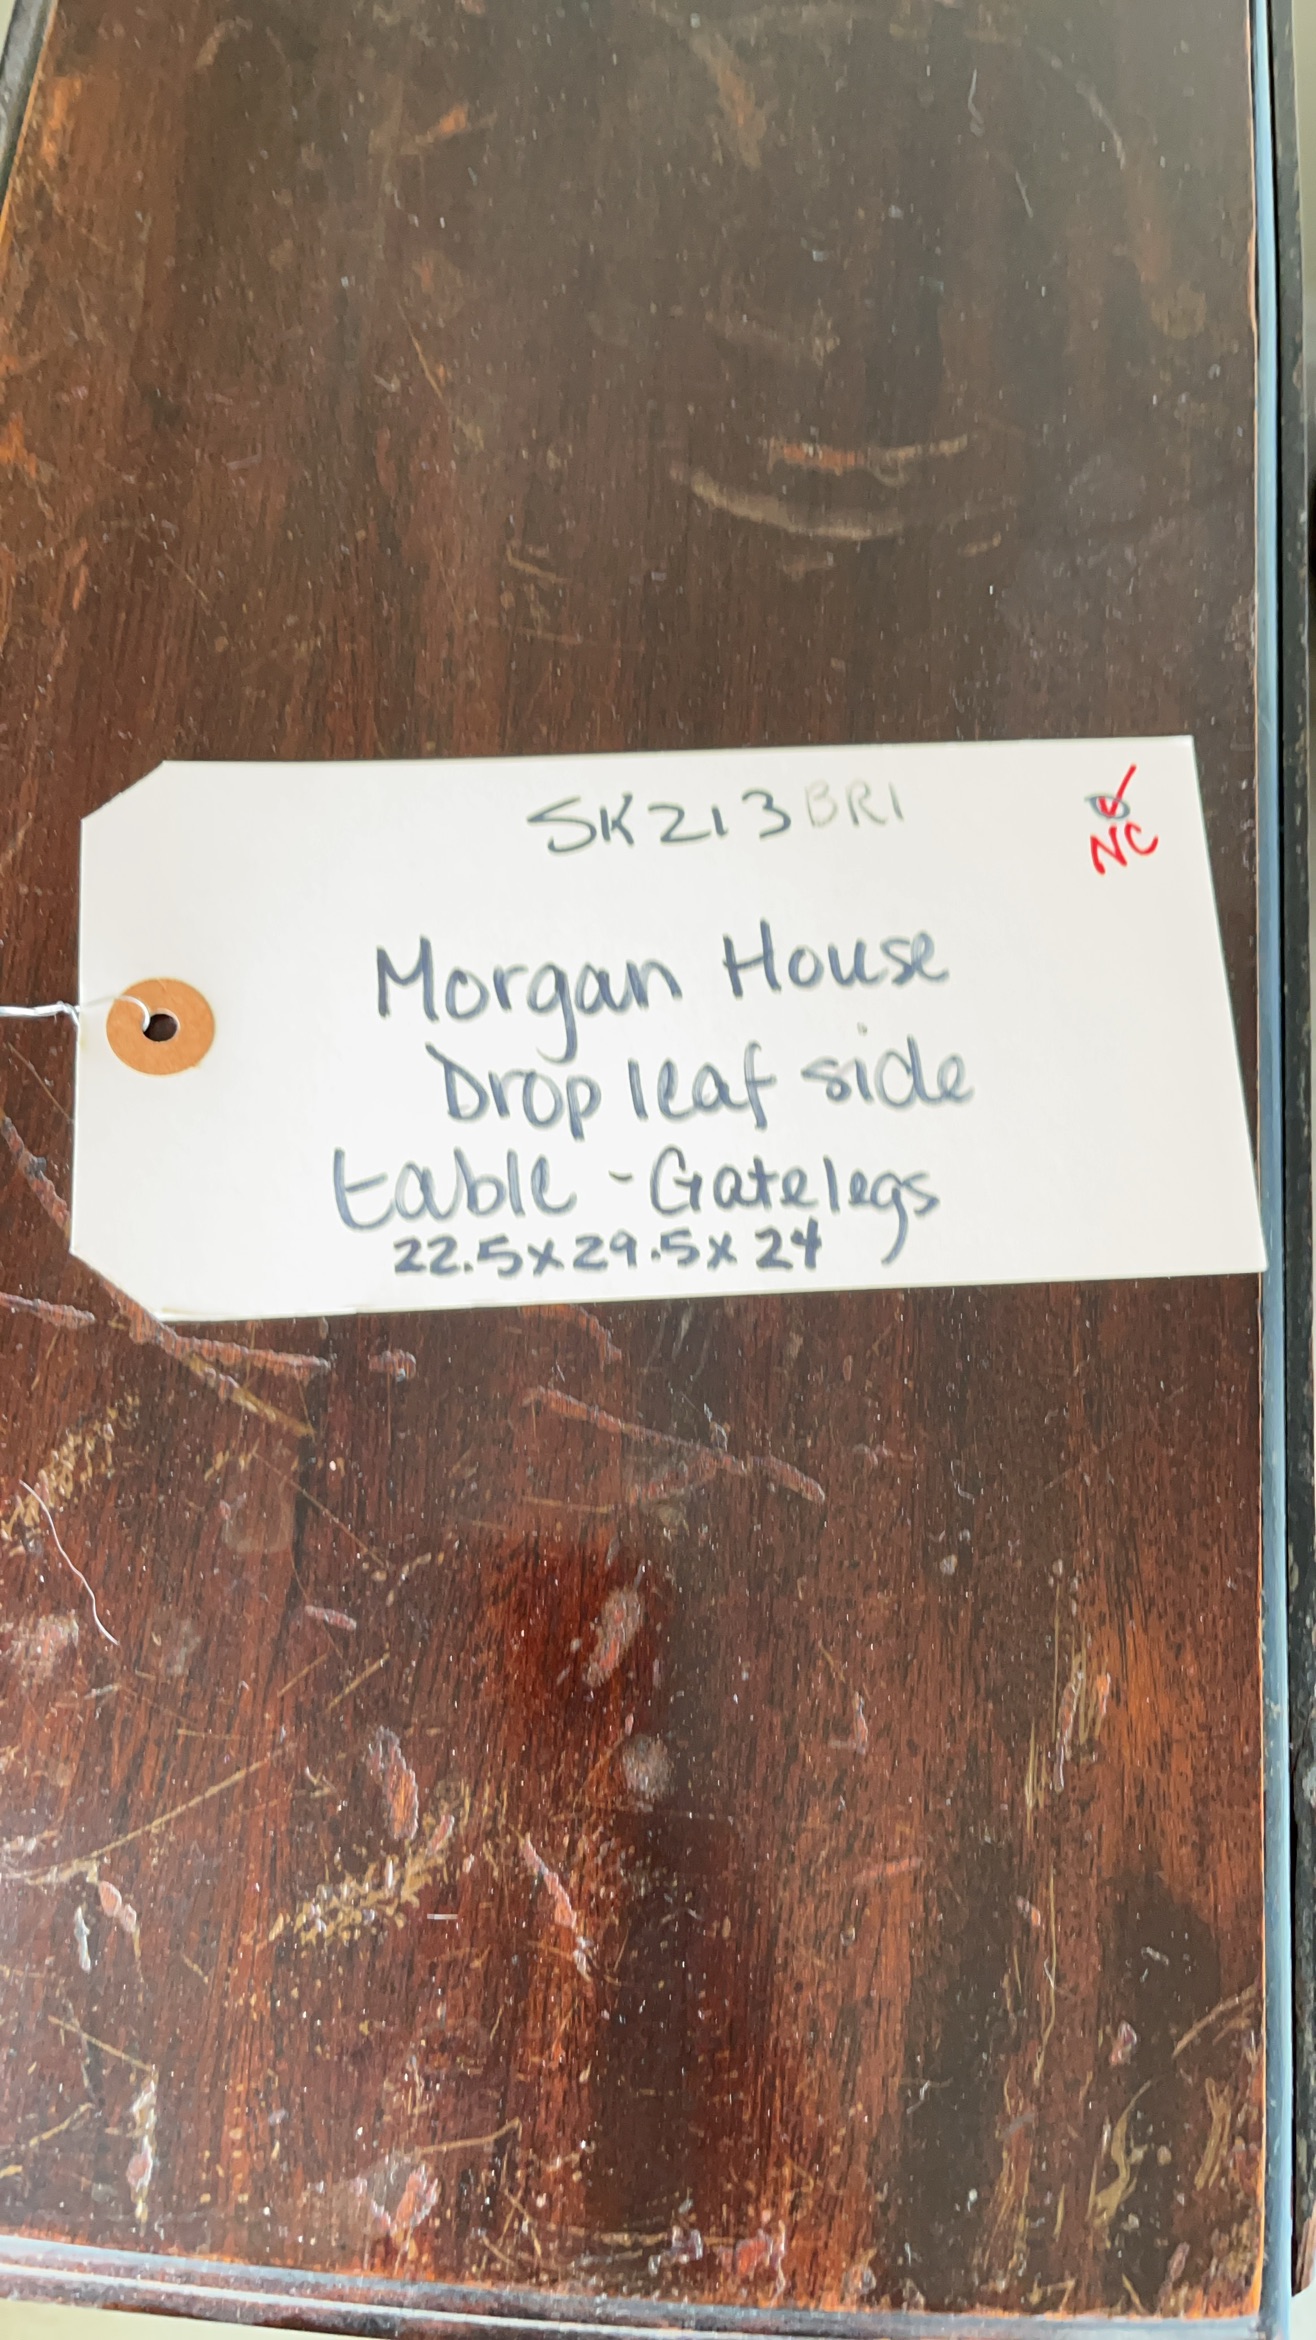 SK213 BR1
NC
Morgan House
Drop leaf side
table - Gatelegs
22.5x29.5x24